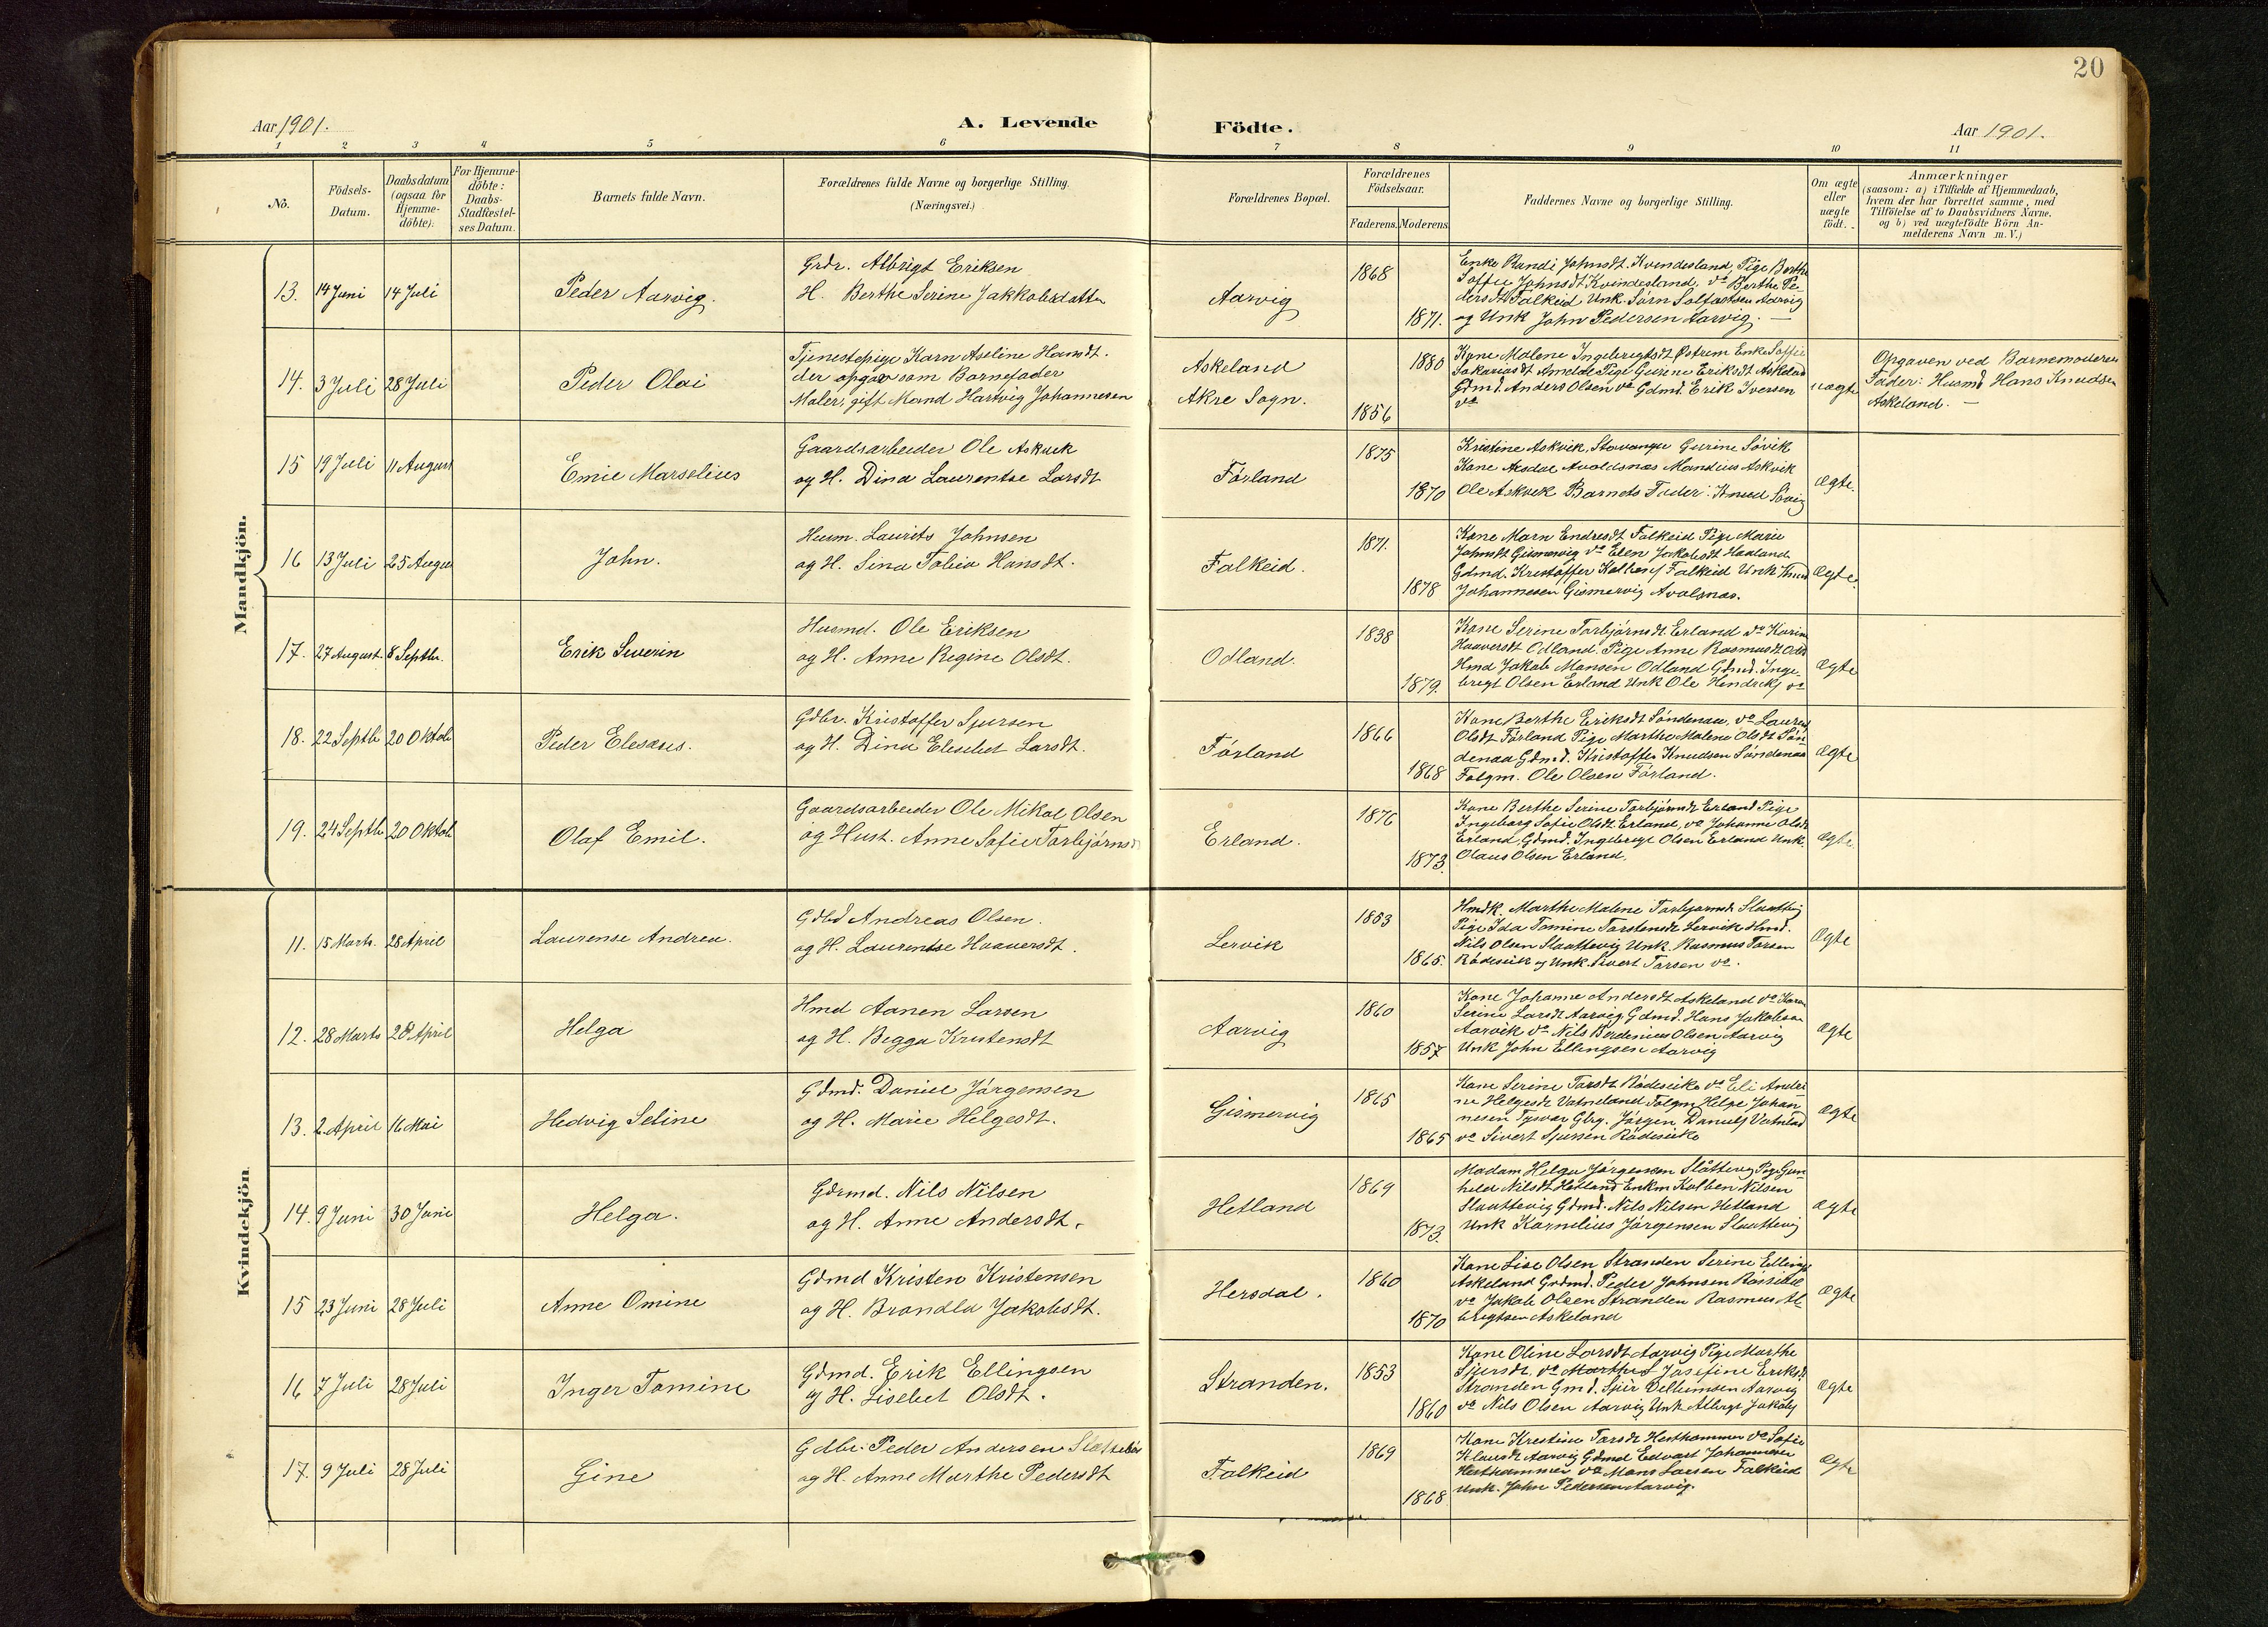 20
Aar 1901.
A. Levende
Födte.
Aar 1901.
1 2 3 4 5 6 7 8 9 10 11
No.
Födsels-
Datum.
Daabsdatum
(ogsaa for
Hjemme-
döbte).
For Hjemme-
döbte:
Daabs-
Stadfæstel-
ses Datum.
Barnets fulde Navn.
Forældrenes fulde Navne og borgerlige Stilling.
(Næringsvei.)
Forældrenes Bopæl.
Forældrenes
Födselsaar.
Faderens. Moderens.
Faddernes Navne og borgerlige Stilling.
Om ægte
eller
uægte
födt.
Anmærkninger
(saasom: a) i Tilfælde af Hjemmedaab,
hvem der har forrettet samme, med
Tilföielse af to Daabsvidners Navne.
og b) ved uægtefödte Börn An-
melderens Navn m. V.)
Mandkjön.
13. 14 Juni 14 Juli
Peder Aarvig.
Grdr. Albrigt Eriksen
H. Berthe Serine Jakkobsdatter
Aarvig
1868
1871.
Enke Randi Johnsdt. Kvindesland, Pige Berthe
Soffie Johnsdt Kvindesland, do Berthe Pe-
dersdt Falkeid Unk. Sørn Solfastsen Aarvig
og Unk John Pedersen Aarvig. —
14. 3 Juli 28 Juli
Peder Olai
Tjenestepige Karn Aseline Hansdt.
der opgav som Barnefader
Maler, gift Mand Hartvig Johannesen
Askeland
Akre Sogn.
1880
1856
Kone Malene Ingebrigtsdt Østrem Enke Soffie
Sakariasdt Amdal Pige Gurine Eriksdt Askeland
Gdmd. Anders Olsen do Gdmd. Erik Iversen
do
uægte
Opgaven ved Barnemoderens
Fader: Husmd Hans Knudsen
Askeland. —
15 19 Juli 11 August
Emie Marselius
Gaardsarbeider Ole Askvek
og H. Dina Laurentse Larsdt
Førland
1875
1870
Kristine Askvik, Stavanger Gurine Søvik
Kone Avaldsnæs Mandius Askvik
Ole Askvik Barnets Fader. Knud Søvig
Ægte.
16 13 Juli 25 August
John.
Husm. Laurits Johnsen
og H. Sina Tobia Hansdt.
Falkeid.
1871.
1878
Kone Marn Endresdt Falkeid Pige Marie
Johnsdt Gismervig do Elen Jakobsdt Haaland
Gdmd. Kristoffer Kolbens Falkeid Unk Knud
Johannesen Gismervig Avalsnæs.
Ægte.
17. 27 August. 8 Septbr.
Erik Severin
Husmd. Ole Eriksen
og H. Anne Regine Olsdt.
Odland.
1838
1879.
Kone Serine Torbjørnsdt. Erland do Karin
Haaversdt Odland. Pige Anne Rasmusdt Odld
Hmd Jakob Monsen Odland Gdmd. Inge-
bregt Olsen Erland Unk Ole Hendriks do
Ægte
18. 22 Septbr 20 Oktob
Peder Elesæus.
Gdbr. Kristoffer Sjursen
og H. Dina Elesebet Larsdt.
Førland
1866
1868
Kone Berthe Eriksdt Søndenaa, do Laurense
Olsdt Førland Pige Marthe Malene Olsdt Søn-
denaa Gdmd. Kristoffer Knudsen Søndenaa
Folgm. Ole Olsen Førland.
Ægte
19. 24 Septbr 20 Oktob
Olaf Emil.
Gaardsarbeider Ole Mikal Olsen
og Hust. Anne Sofie Torbjørnsdt
Erland.
1876
1873.
Kone Berthe Serine Torbjørnsdt Erland Pige
Ingeborg Sofie Olsdt Erland, do Johanne Olsdt
Erland, Gdmd. Ingebrigt Olsen Erland Unk.
Olaus Olsen Erland.
Ægte
Kvindekjön
11. 15 Marts. 28 April
Laurense Andrea.
Gdbd Andreas Olsen.
og H. Laurentse Haaversdt.
Lervik
1853
1865.
Hmdk. Marthe Malene Torbjørnsdt Slaattevig
Pige Ida Tomine Torstensdt Lervik Hmd.
Nils Olsen Slaattevig Unk. Rasmus Torsen
Rødeseike og Unk. Sivert Torsen do.
Ægte
12. 28 Marts 28 April
Helga
Hmd Aanen Larsen
og H. Begga Kristensdt
Aarvig
1860
1857
Kone Johanne Andersdt Askeland do Karen
Serine Larsdt Aarvig Gdmd. Hans Jakobsen
Aarvik do Nils Berdenius Olsen Aarvig
Unk John Ellingsen Aarvig
Ægte
13. 2 April 16 Mai
Hedvig Seline
Gdmd. Daniel Jørgensen
og H. Marie Helgesdt.
Gismervig
1865
1865
Kone Serine Torsdt Rødeseike do Eli Andri-
ne Helgesdt Vatneland Folgm Helge Johan-
nesen Tysvær Gbrg. Jørgen Daniels Vatnlad
do Sivert Sjursen Rødeseike
Ægte
14. 9 Juni 30 Juni
Helga.
Gdrmd. Nils Nilsen
og H. Anne Andersdt.
Hetland
1869
1873.
Madam Helga Jørgensen Slåttevig Pige Gun-
hild Nilsdt Hetland Enkm Kolben Nilsen
Slaattevig Gdmd. Nils Nilsen Hetland
Unk Kornelius Jørgensen Slaattevig
Ægte
15 23 Juni 28 Juli
Anne Omine
Gdmd Kristen Kristensen
og H. Brandla Jakobsdt.
Hersdal.
1860
1870
Kone Lise Olsen Stranden Serine Ellings
Askeland Grdmd. Peder Johnsen
do Jakob Olsen Stranden Rasmus Al-
brigtsen Askeland
Ægte
16 7 Juli 28 Juli
Inger Tomine
Gdmd. Erik Ellingsen
og H. Lisebet Olsdt.
Stranden.
1853
1860
Kone Oline Larsdt Aarvig Pige Marthe
Sjursdt, do Marthe Josefine Eriksdt
Stranden Gmd. Sjur Velhemsen Aarvig
do Nils Olsen Aarvig Unk Albregt Jakobs
Ægte
17. 9 Juli 28 Juli
Gine
Gdbr. Peder Andersen
og H. Anne Marthe Pedersdt
Falkeid
1869
1868
Kone Krestine Torsdt Hesthammer do Sofie
Klausdt Aarvig Gdmd Edvart Johannesen
Hesthammer do Mons Larsen Falkeid
Unk. John Pedersen Aarvig.
Ægte